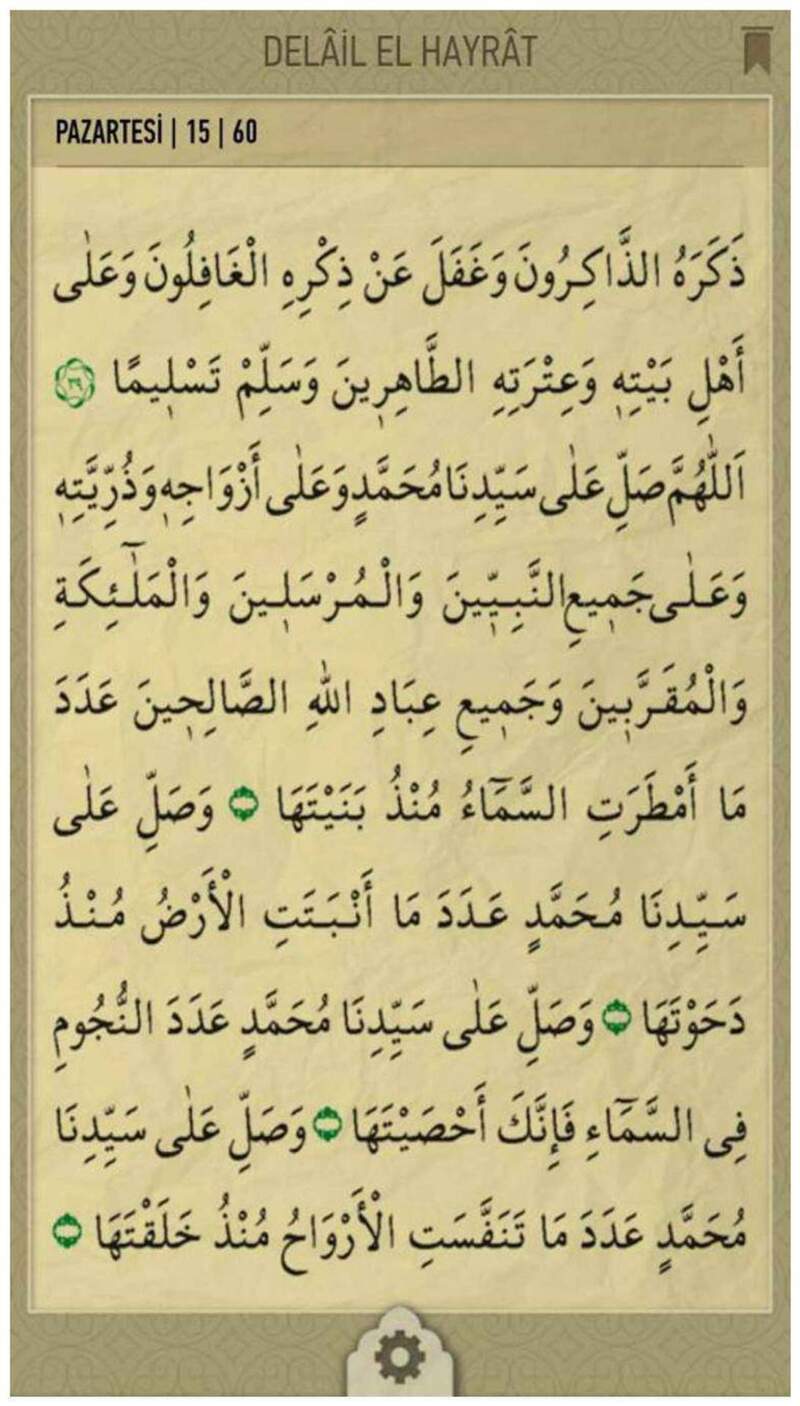 DELÂİL EL HAYRÂT
PAZARTESİ | 15 | 60
ذَكَرَهُ الذَّاكِرُونَ وَغَفَلَ عَنْ ذِكْرِهِ الْغَافِلُونَ وَعَلٰى
أَهْلِ بَيْتِهٖ وَعِتْرَتِهِ الطَّاهِرٖينَ وَسَلِّمْ تَسْلٖيمًا ٣٩
اَللّٰهُمَّ صَلِّ عَلٰى سَيِّدِنَا مُحَمَّدٍ وَعَلٰى أَزْوَاجِهٖ وَذُرِّيَّتِهٖ
وَعَلٰى جَمٖيعِ النَّبِيّٖينَ وَالْمُرْسَلٖينَ وَالْمَلٰٓئِكَةِ
وَالْمُقَرَّبٖينَ وَجَمٖيعِ عِبَادِ اللّٰهِ الصَّالِحٖينَ عَدَدَ
مَا أَمْطَرَتِ السَّمَٓاءُ مُنْذُ بَنَيْتَهَا وَصَلِّ عَلٰى
سَيِّدِنَا مُحَمَّدٍ عَدَدَ مَا أَنْبَتَتِ الْأَرْضُ مُنْذُ
دَحَوْتَهَا وَصَلِّ عَلٰى سَيِّدِنَا مُحَمَّدٍ عَدَدَ النُّجُومِ
فِى السَّمَٓاءِ فَإِنَّكَ أَحْصَيْتَهَا وَصَلِّ عَلٰى سَيِّدِنَا
مُحَمَّدٍ عَدَدَ مَا تَنَفَّسَتِ الْأَرْوَاحُ مُنْذُ خَلَقْتَهَا